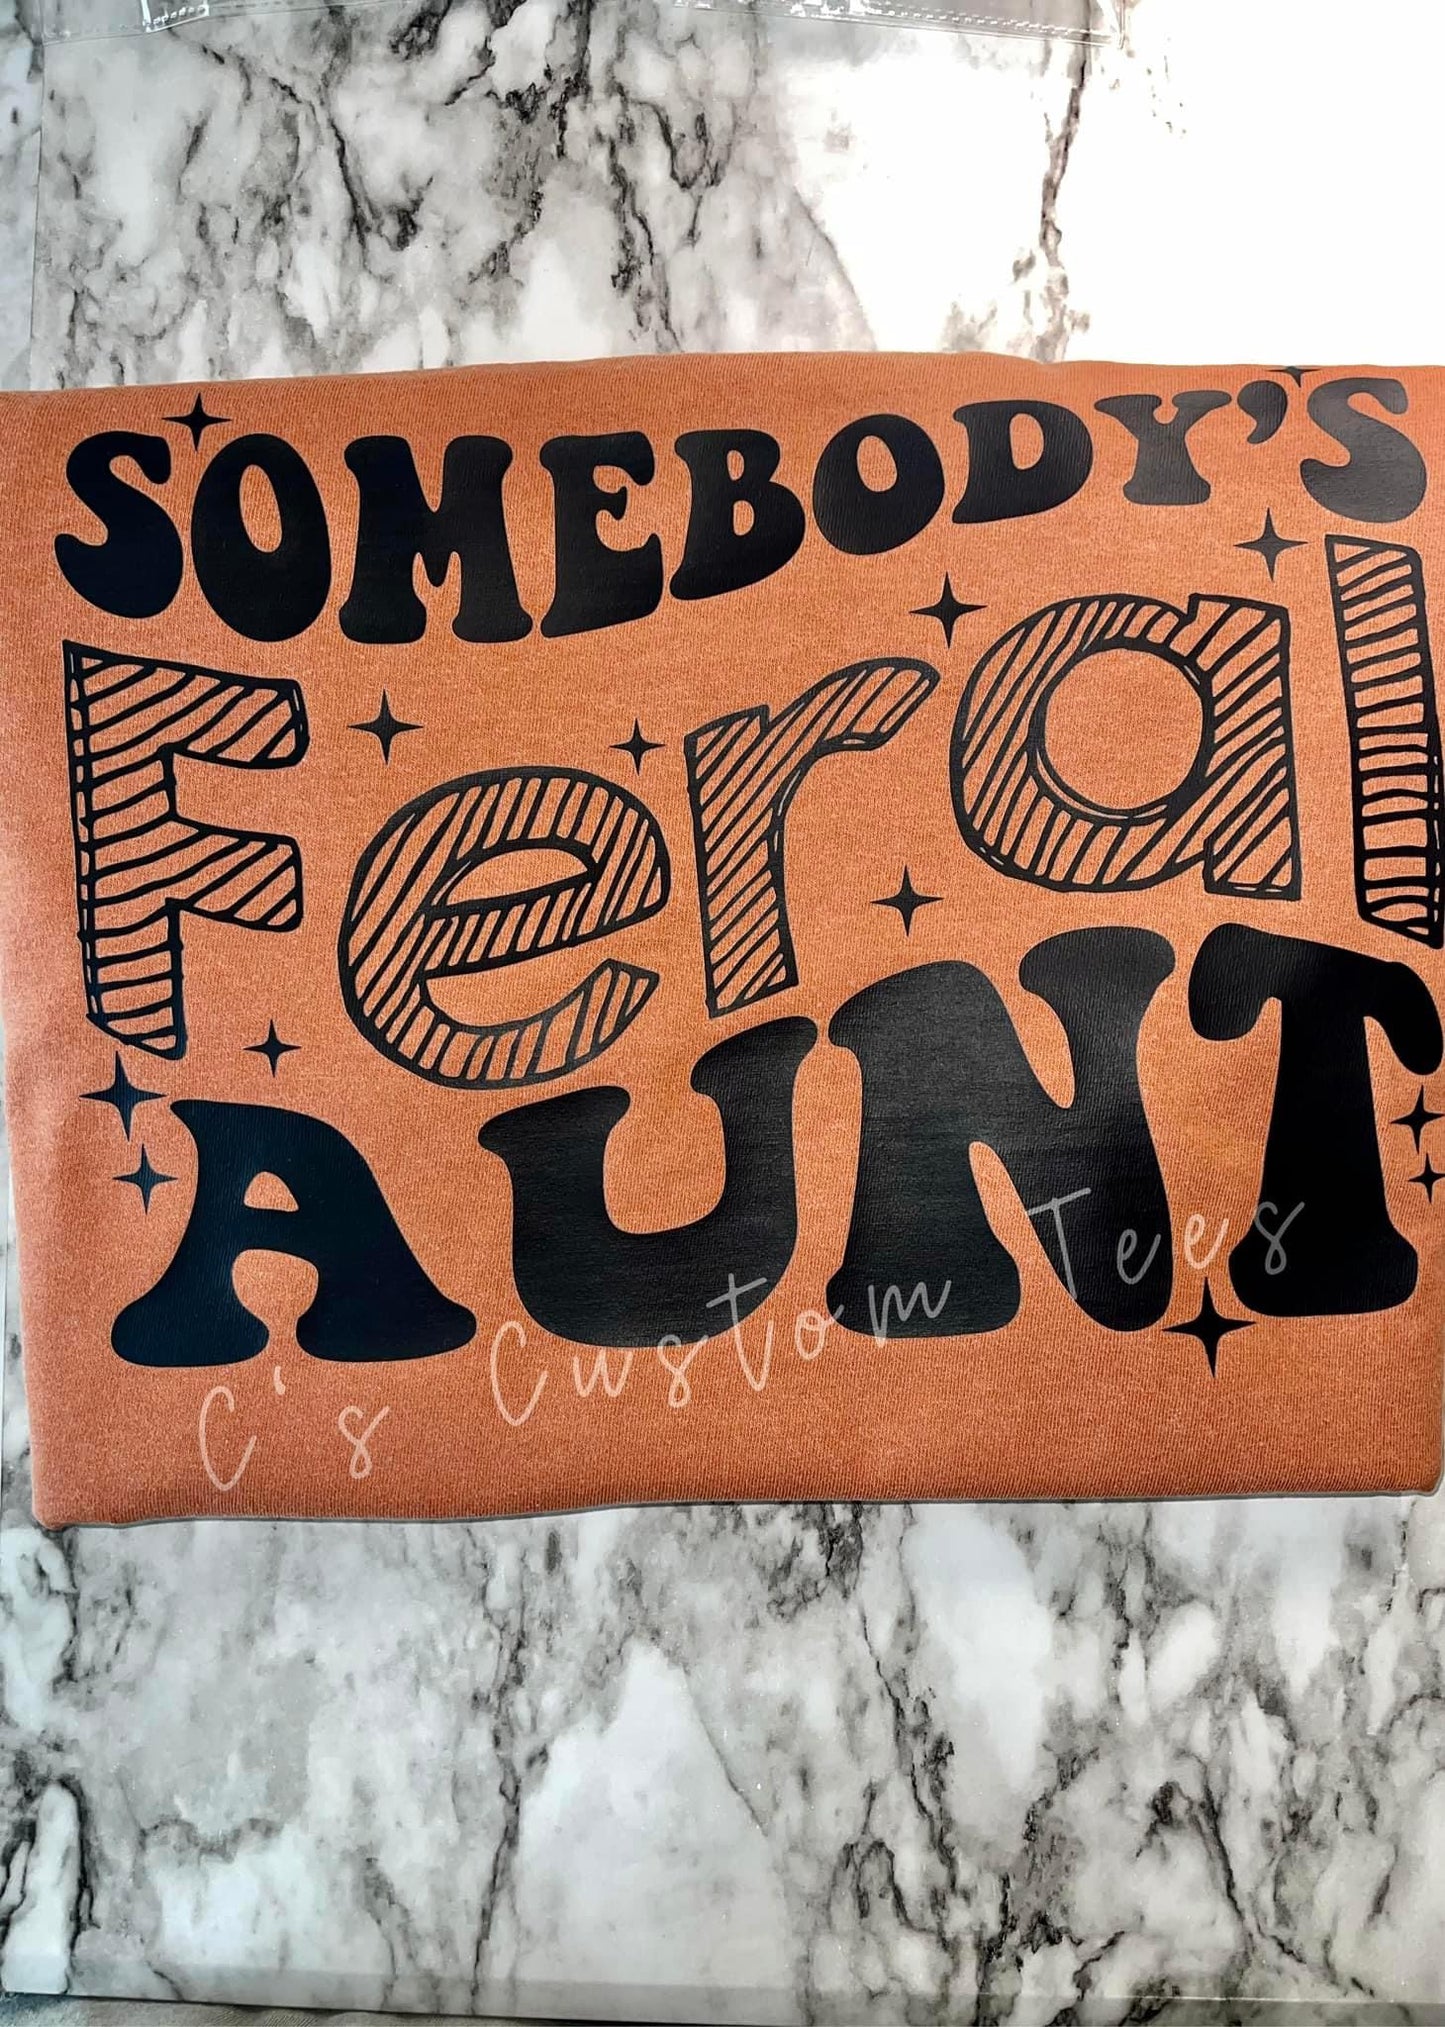 SOMEBODY'S
Feral
AUNT
C's Custom Tees